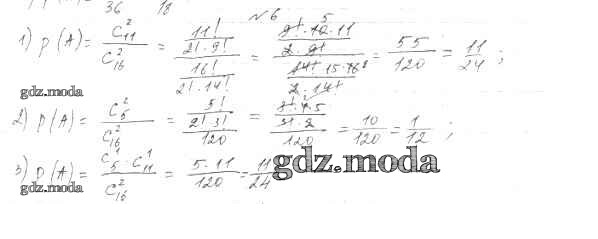 36 18
№ 6
1) p(A) = C²₁₁ / C²₁₆ = (11! / 2!·9!) / (16! / 2!·14!) = (9!·10·11 / 2·9!) / (14!·15·16 / 2·14!) = 55/120 = 11/24 ;
gdz.moda
2) p(A) = C²₅ / C²₁₆ = (5! / 2!·3!) / 120 = (3!·4·5 / 3!·2) / 120 = 10/120 = 1/12 ;
3) p(A) = C¹₅ · C¹₁₁ / C²₁₆ = 5·11 / 120 = 11/24
gdz.moda
gdz.moda